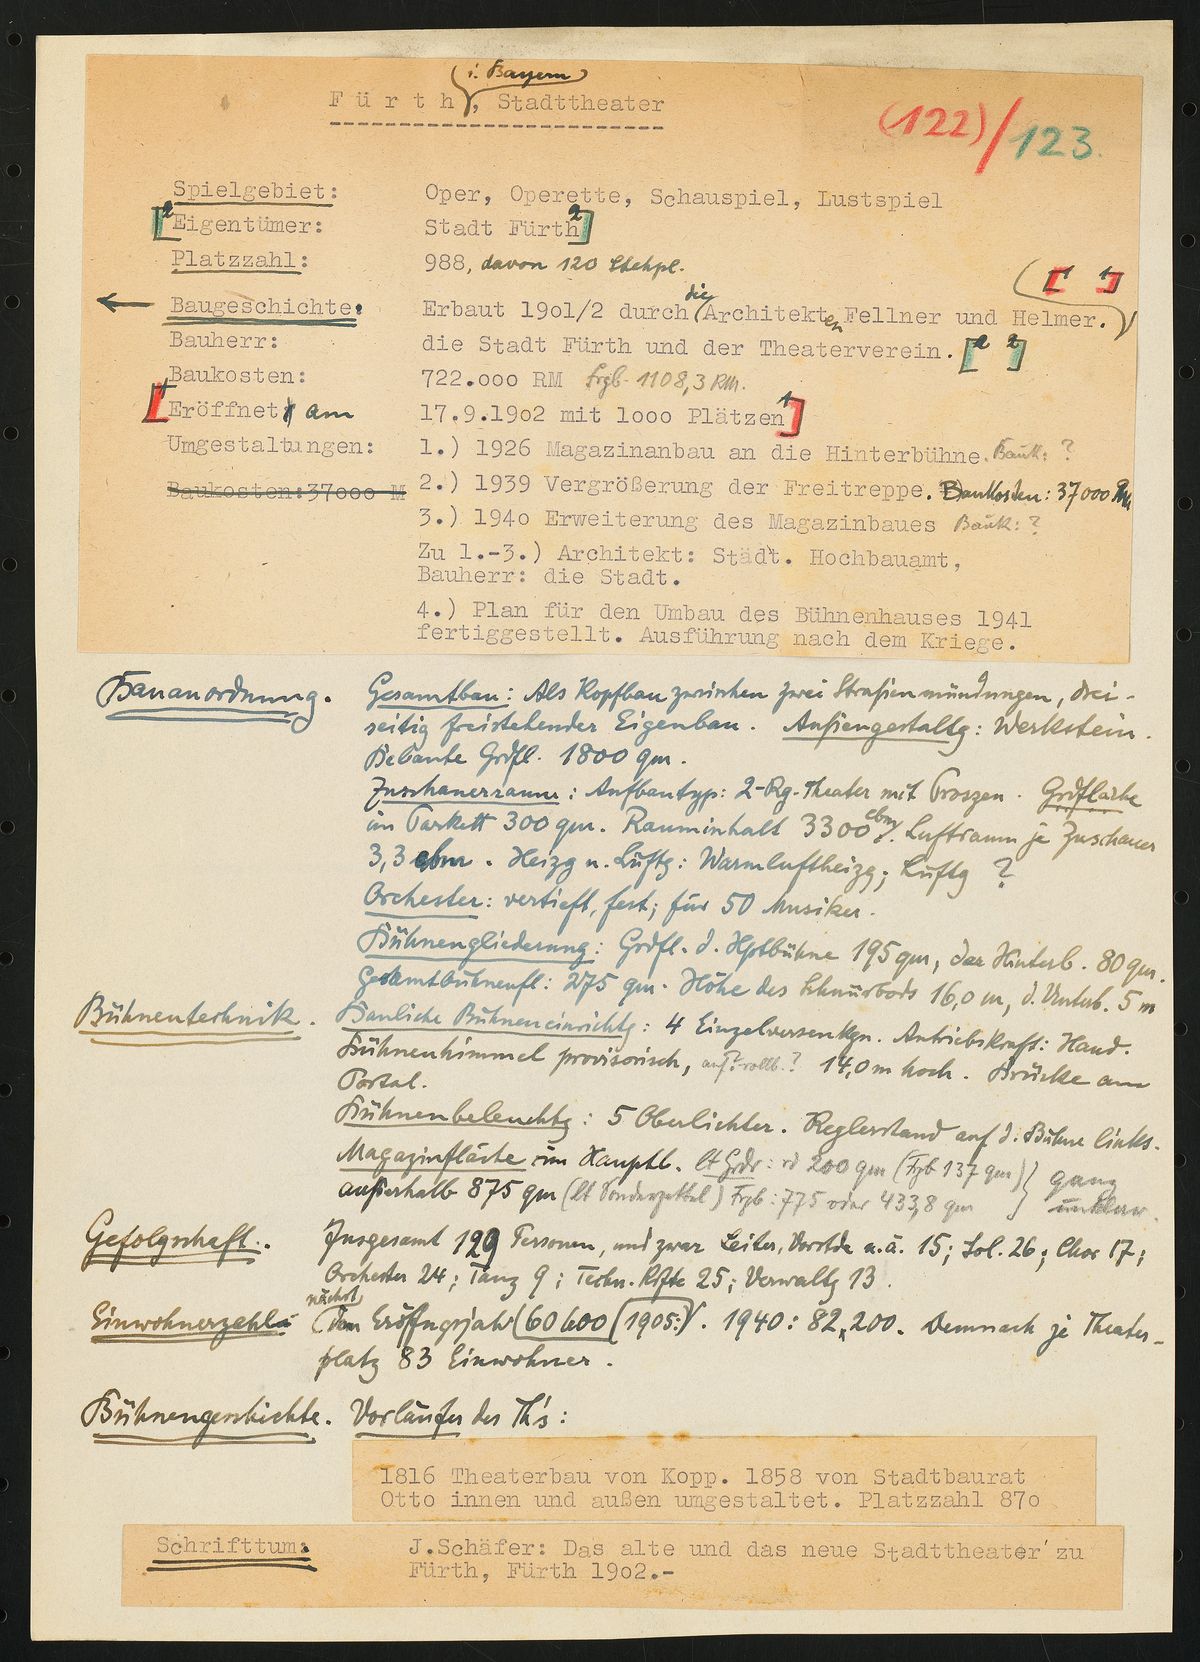 (i. Bayern)
Fürth, Stadttheater
(122)/123.
Spielgebiet: Oper, Operette, Schauspiel, Lustspiel
[2 Eigentümer: Stadt Fürth 2]
Platzzahl: 988, davon 120 Stehpl.
← Baugeschichte: Erbaut 19o1/2 durch die Architekten Fellner und Helmer. [1 1]
Bauherr: die Stadt Fürth und der Theaterverein. [2 2]
Baukosten: 722.ooo RM Frgb. 1108,3 RM.
[1 Eröffnet am 17.9.19o2 mit 1ooo Plätzen 1]
Umgestaltungen: 1.) 1926 Magazinanbau an die Hinterbühne. Bauk: ?
Baukosten:37ooo M 2.) 1939 Vergrößerung der Freitreppe. Baukosten: 37000 RM
3.) 194o Erweiterung des Magazinbaues Bauk: ?
Zu 1.-3.) Architekt: Städt. Hochbauamt,
Bauherr: die Stadt.
4.) Plan für den Umbau des Bühnenhauses 1941
fertiggestellt. Ausführung nach dem Kriege.
Bauanordnung. Gesamtbau: Als Kopfbau zwischen zwei Straßenmündungen, drei-
seitig freistehender Eigenbau. Außengestaltg: Werkstein.
Bebaute Grdfl. 1800 qm.
Zuschauerraum: Aufbautyp: 2-Rg-Theater mit Proszen. Grdfläche
im Parkett 300 qm. Rauminhalt 3300 cbm. Luftraum je Zuschauer
3,3 cbm. Heizg u. Lüftg: Warmluftheizg; Lüftg ?
Orchester: vertieft, fest; für 50 Musiker.
Bühnengliederung: Grdfl. d. Hptbühne 195 qm, der Hinterb. 80 qm.
Gesamtbühnenfl: 275 qm. Höhe des Schnürbods 16,0 m, d. Unterb. 5 m
Bühnentechnik. Bauliche Bühneneinrichtg: 4 Einzelversenkgn. Antriebskraft: Hand.
Bühnenhimmel provisorisch, auf?-rollb.? 14,0 m hoch. Brücke am
Portal.
Bühnenbeleuchtg: 5 Oberlichter. Reglerstand auf d. Bühne links.
Magazinfläche im Hauptb. lt Grdr: rd 200 qm (Frgb 137 qm) } ganz
außerhalb 875 qm (lt Sonderzettel) Frgb: 775 oder 433,8 qm } unklar.
Gefolgschaft. Insgesamt 129 Personen, und zwar Leiter, Vorstde u.ä. 15; Sol. 26; Chor 17;
Orchester 24; Tanz 9; Techn. Kräfte 25; Verwaltg 13.
nächst
Einwohnerzahl: (Im Eröffngsjahr (60600 (1905:). 1940: 82,200. Demnach je Theater-
platz 83 Einwohner.
Bühnengeschichte. Vorläufer des Th's:
1816 Theaterbau von Kopp. 1858 von Stadtbaurat
Otto innen und außen umgestaltet. Platzzahl 87o
Schrifttum: J.Schäfer: Das alte und das neue Stadttheater zu
Fürth, Fürth 19o2.-